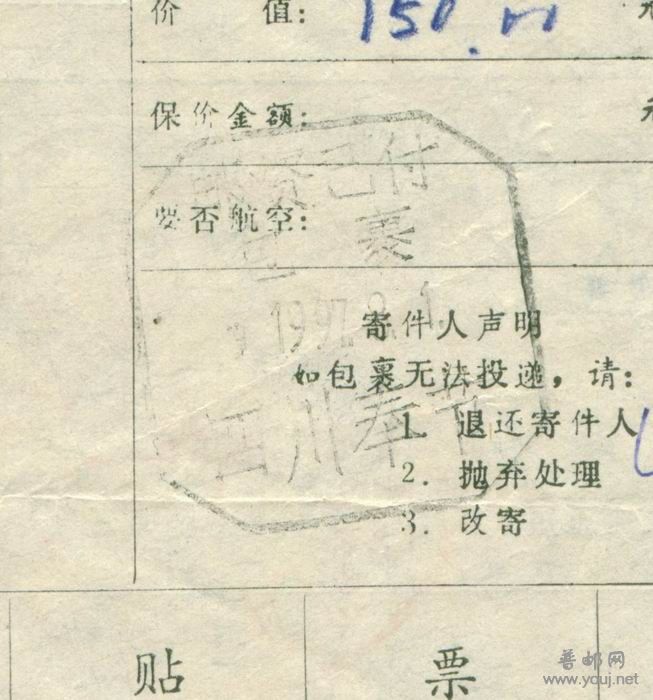 价 值: 150.00 元
保价金额: 元
资已付
要否航空:
包 裹
1997.9.1
寄件人声明
如包裹无法投递，请:
四川奉节
1. 退还寄件人
2. 抛弃处理
3. 改寄
贴 票
普邮网
www.youj.net